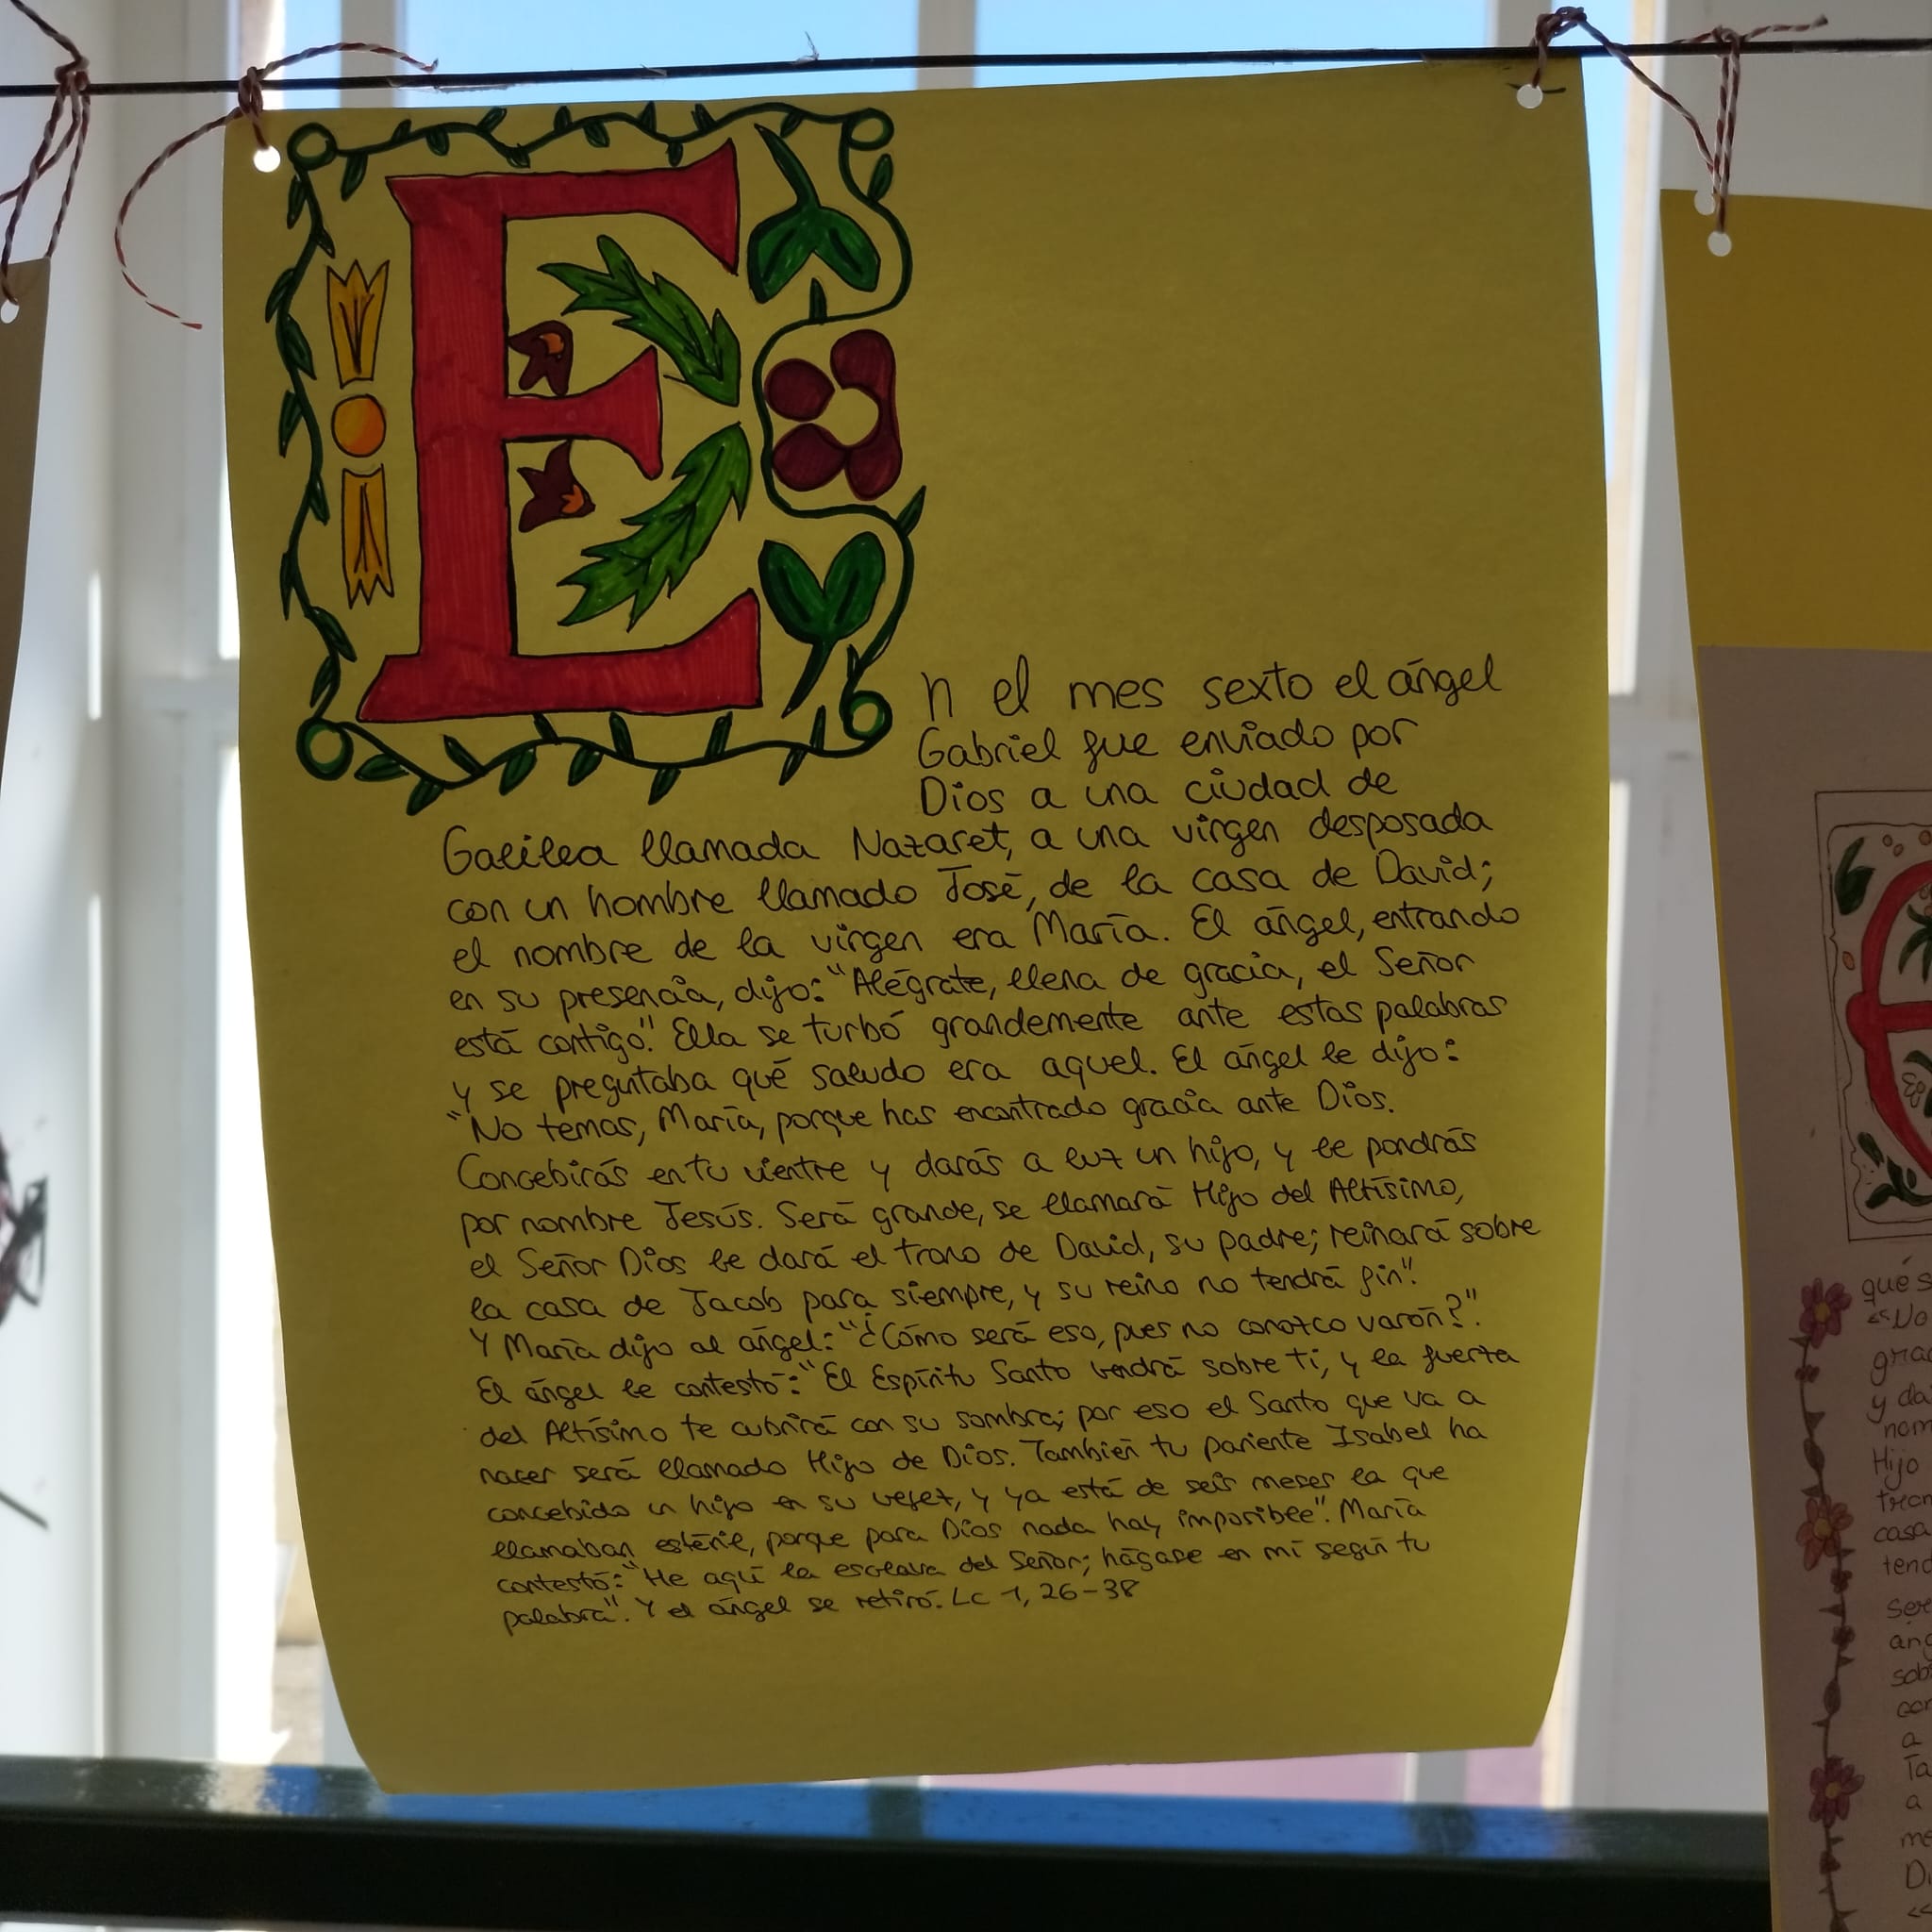 En el mes sexto el ángel
Gabriel fue enviado por
Dios a una ciudad de
Galilea llamada Nazaret, a una virgen desposada
con un hombre llamado José, de la casa de David;
el nombre de la virgen era María. El ángel, entrando
en su presencia, dijo: "Alégrate, llena de gracia, el Señor
está contigo". Ella se turbó grandemente ante estas palabras
y se preguntaba qué saludo era aquel. El ángel le dijo:
"No temas, María, porque has encontrado gracia ante Dios.
Concebirás en tu vientre y darás a luz un hijo, y le pondrás
por nombre Jesús. Será grande, se llamará Hijo del Altísimo,
el Señor Dios le dará el trono de David, su padre; reinará sobre
la casa de Jacob para siempre, y su reino no tendrá fin".
Y María dijo al ángel: "¿Cómo será eso, pues no conozco varón?".
El ángel le contestó: "El Espíritu Santo vendrá sobre ti, y la fuerza
del Altísimo te cubrirá con su sombra; por eso el Santo que va a
nacer será llamado Hijo de Dios. También tu pariente Isabel ha
concebido un hijo en su vejez, y ya está de seis meses la que
llamaban estéril, porque para Dios nada hay imposible". María
contestó: "He aquí la esclava del Señor; hágase en mí según tu
palabra". Y el ángel se retiró. Lc 1, 26-38
qué s
"No
grac
y da
nom
Hijo
tron
casa
tend
ser
áng
sob
con
a
Ta
a
me
Di